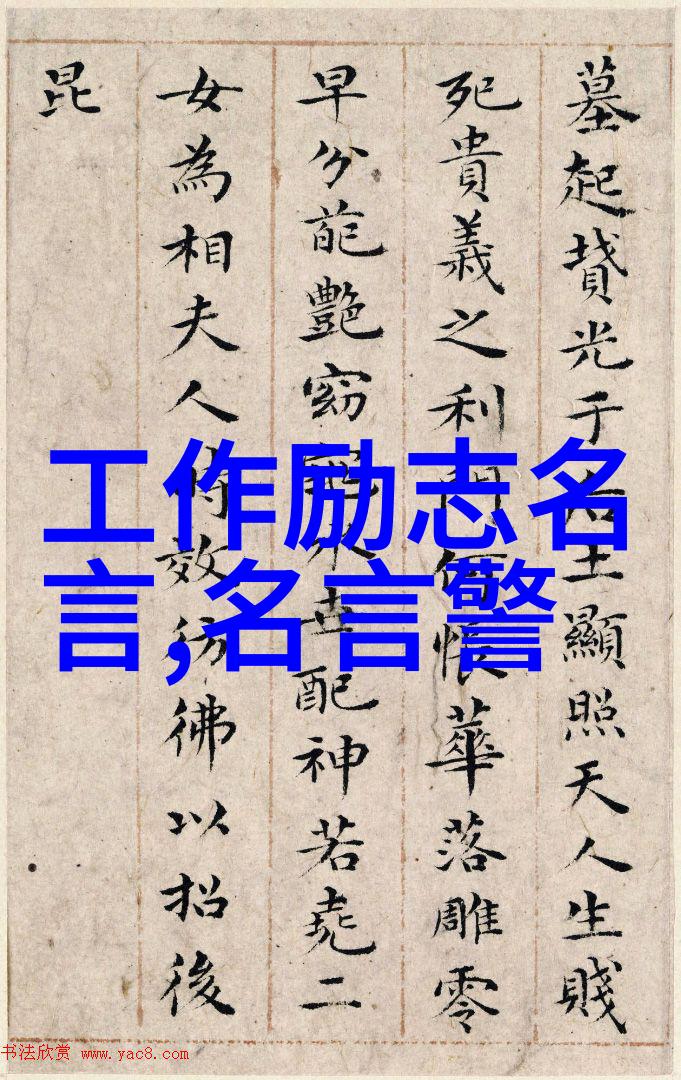 墓起墳光于后土顯照天人生賤
死貴義之利門何悵華落雕零
早分葩艷窈窕永世配神若堯二
女為相夫人時效彷彿以招後
昆
工作励志名
言,名言警
书法欣赏 www.yac8.com